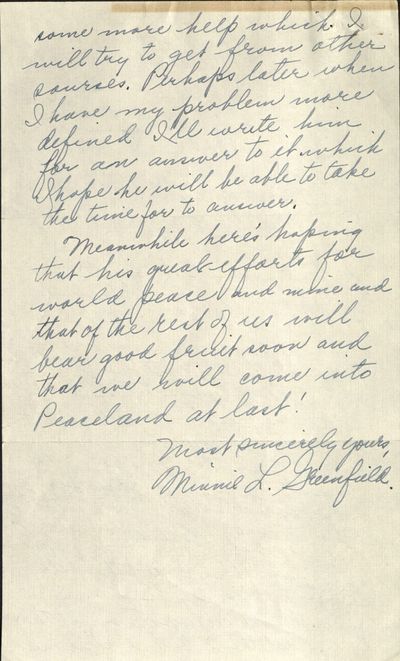 some more help which I
will try to get from other
sourses. Perhaps later when
I have my problem more
defined I'll write him
for an answer to it which
I hope he will be able to take
the time for to answer.
Meanwhile here's hoping
that his great efforts for
world peace and mine and
that of the rest of us will
bear good fruit soon and
that we will come into
Peaceland at last!
Most sincerely yours,
Minnie L. Greenfield.